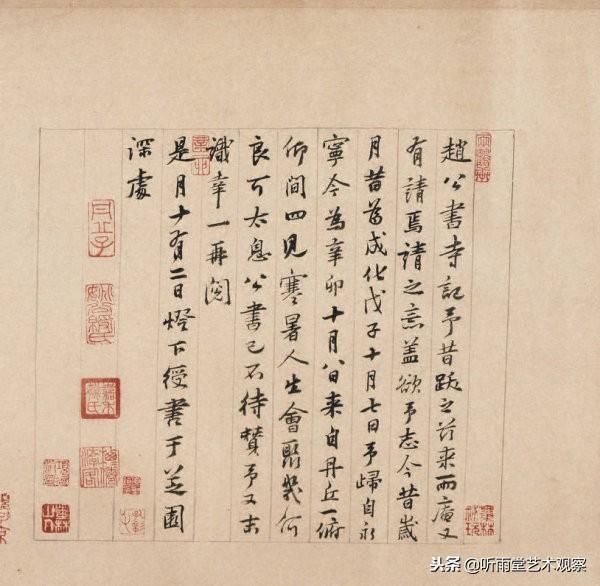 趙公書寺記予昔跋之茲来而庵又
有請焉請之意盖欲予志今昔歲
月昔為成化戊子十月七日予歸自永
寧今為辛卯十月八日来自丹丘一俯
仰間四見寒暑人生會聚幾何
良可太息公書已不待賛予又未
識幸一再閱
是月十有二日燈下書于芝園
深處
头条 @听雨堂艺术观察